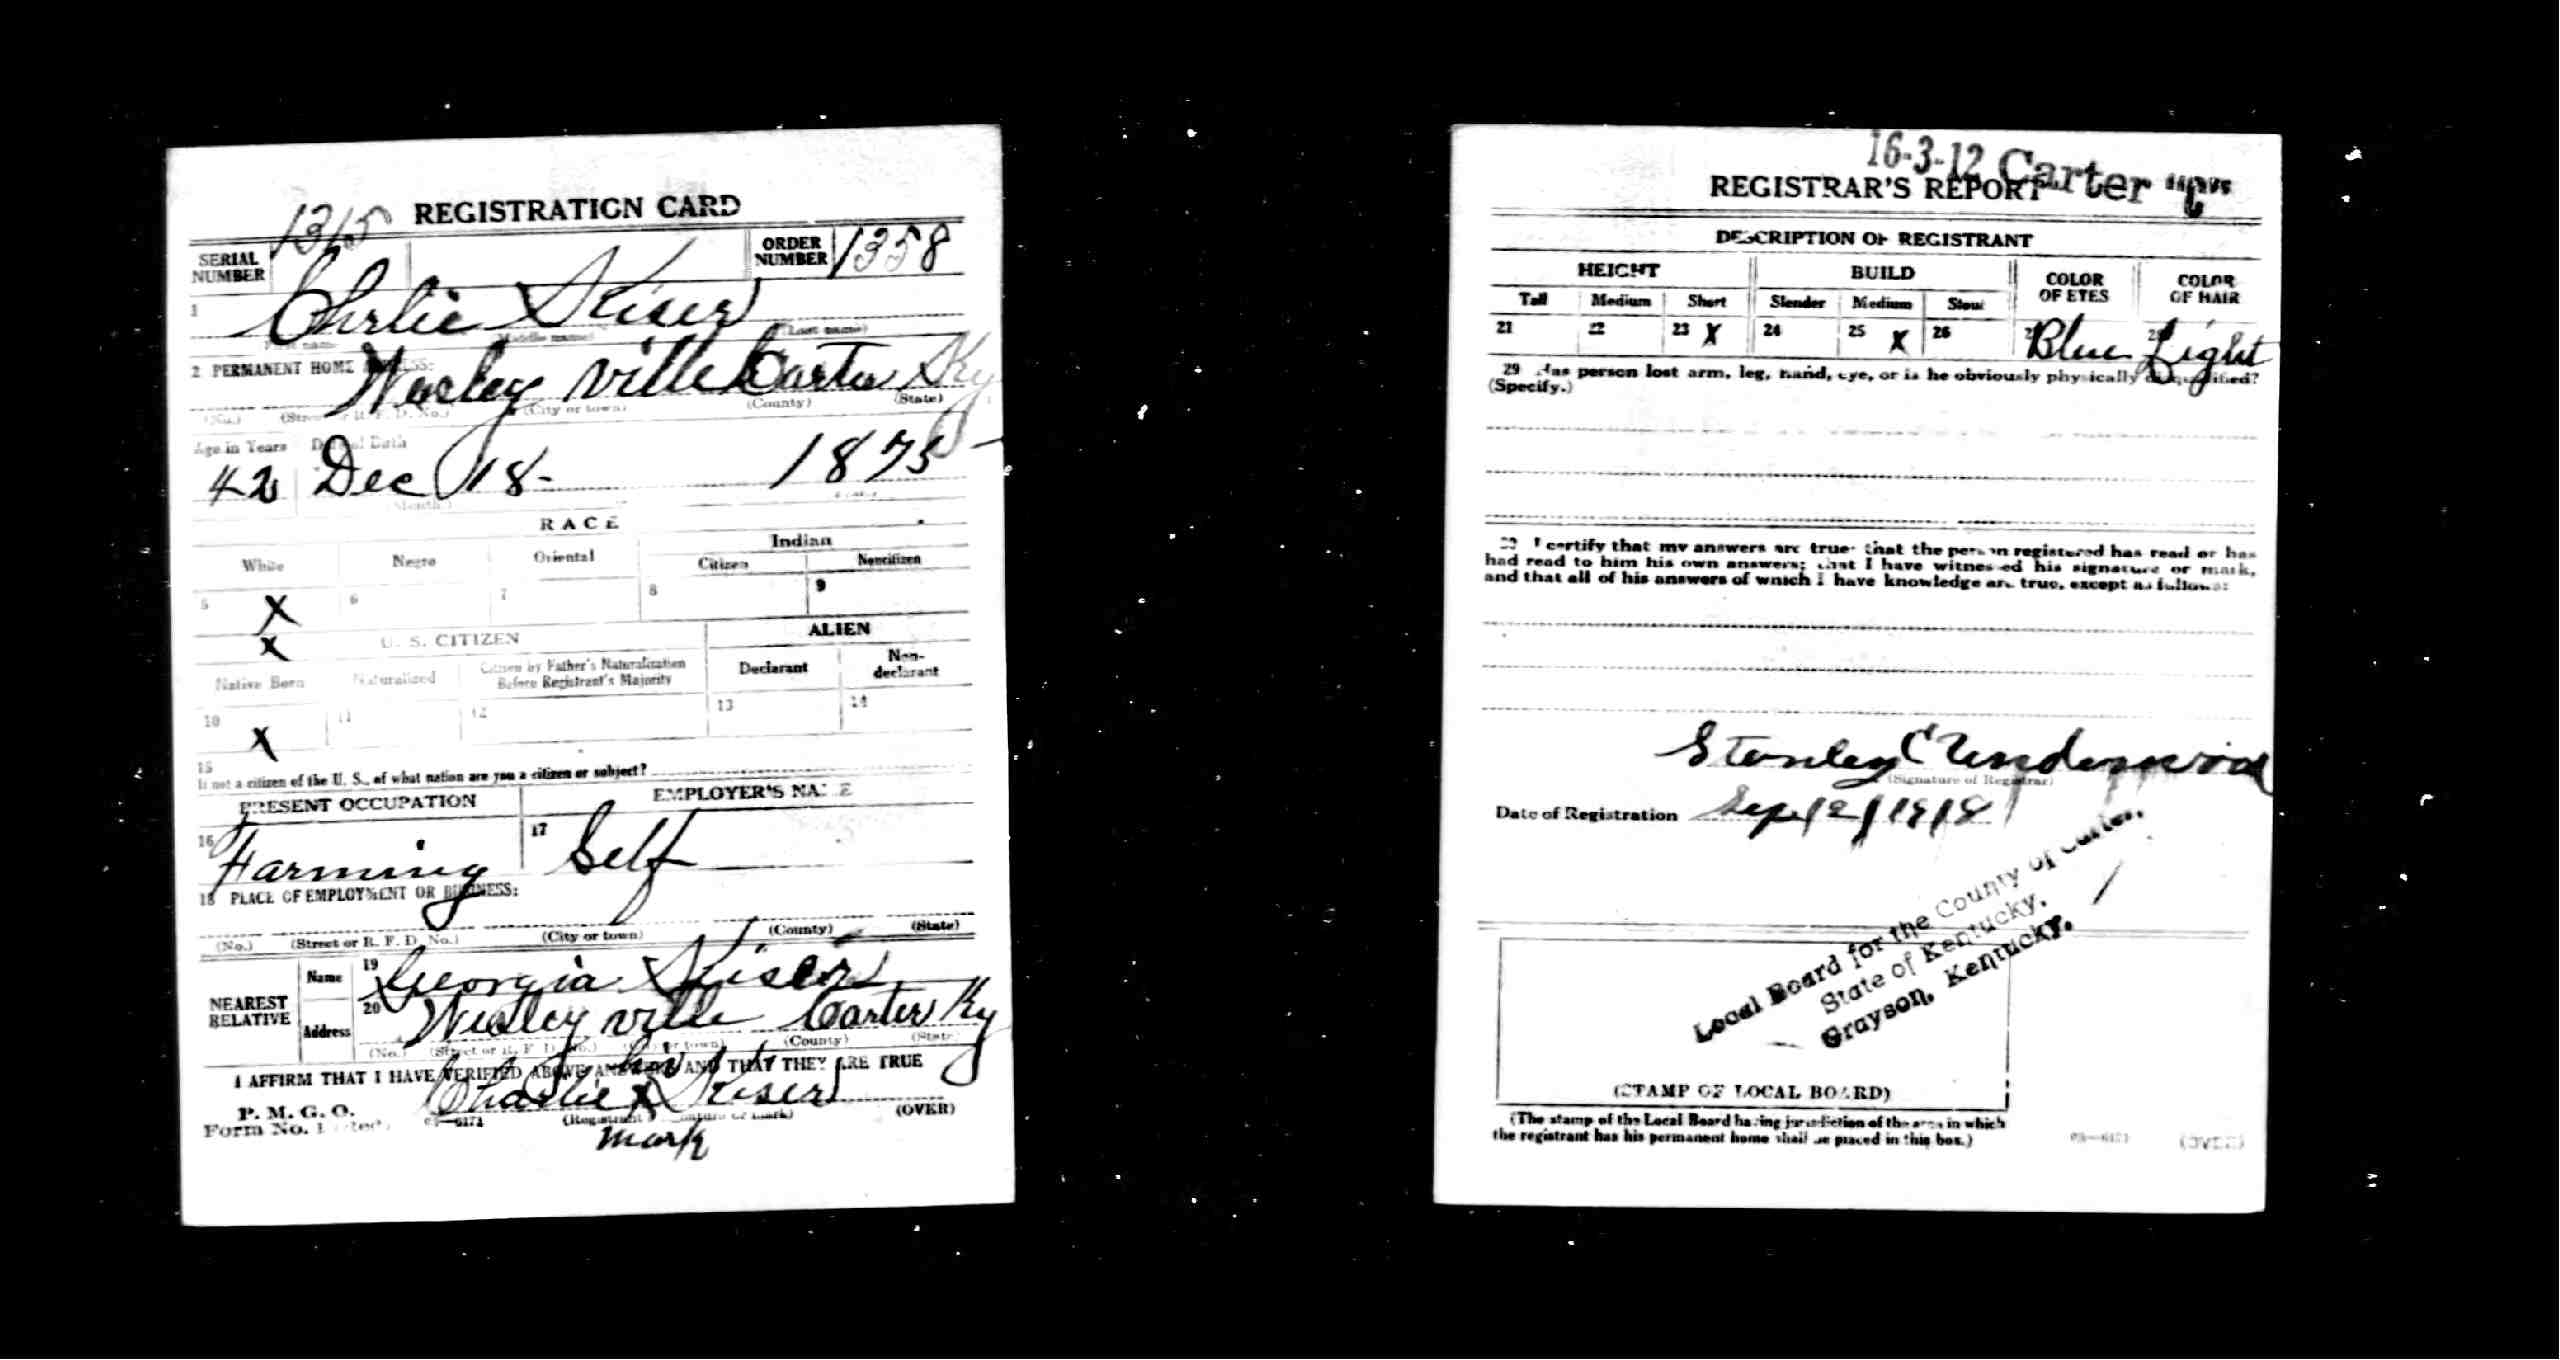 REGISTRATION CARD
SERIAL NUMBER 1315 ORDER NUMBER 1358
1 Chrlie Kiser
(Middle name) (Last name)
2 PERMANENT HOME ADDRESS:
Wesley ville Carter Ky
(No.) (Street or R. F. D. No.) (City or town) (County) (State)
Age in Years Date of Birth
42 Dec 18- 1875
(Month)
RACE
White Negro Oriental Indian
Citizen Noncitizen
5 X 6 7 8 9
X U. S. CITIZEN ALIEN
Native Born Naturalized Citizen by Father's Naturalization Before Registrant's Majority Declarant Non-declarant
10 X 11 12 13 14
15
If not a citizen of the U. S., of what nation are you a citizen or subject?
PRESENT OCCUPATION EMPLOYER'S NAME
16 Farming 17 Self
18 PLACE OF EMPLOYMENT OR BUSINESS:
(No.) (Street or R. F. D. No.) (City or town) (County) (State)
NEAREST RELATIVE
Name 19 Georgia Kiser
Address 20 Wesley ville Carter Ky
(No.) (Street or R. F. D. No.) (City or town) (County) (State)
I AFFIRM THAT I HAVE VERIFIED ABOVE ANSWERS AND THAT THEY ARE TRUE
his
Charlie X Kiser
P. M. G. O.
Form No. 1 (Registrant's signature or mark) (OVER)
mark
16-3-12 Carter "C"
REGISTRAR'S REPORT
DESCRIPTION OF REGISTRANT
HEIGHT BUILD COLOR OF EYES COLOR OF HAIR
Tall Medium Short Slender Medium Stout
21 22 23 X 24 25 X 26 Blue Light
29 Has person lost arm, leg, hand, eye, or is he obviously physically disqualified?
(Specify.)
30 I certify that my answers are true; that the person registered has read or has
had read to him his own answers; that I have witnessed his signature or mark,
and that all of his answers of which I have knowledge are true, except as follows:
Stanley C Underwood
(Signature of Registrar)
Date of Registration Sep 12 1918
Local Board for the County of Carter,
State of Kentucky,
Grayson, Kentucky.
(STAMP OF LOCAL BOARD)
(The stamp of the Local Board having jurisdiction of the area in which
the registrant has his permanent home shall be placed in this box.)
(OVER)